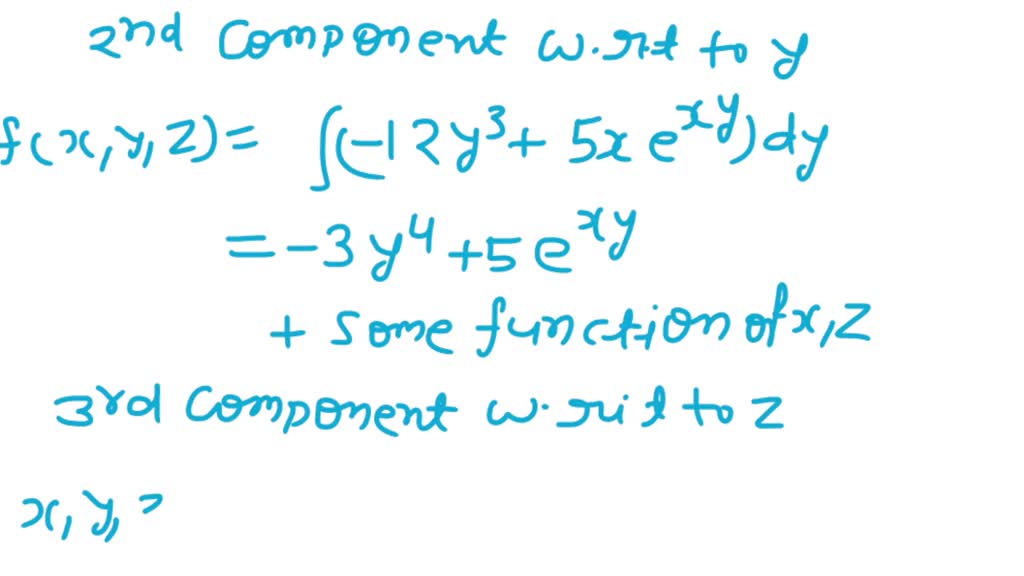 2nd component w.r.t to y
f(x,y,z) = ∫(-12y³ + 5x e^{xy})dy
= -3y⁴ + 5e^{xy}
+ some function of x,z
3rd component w.r.t to z
x,y,